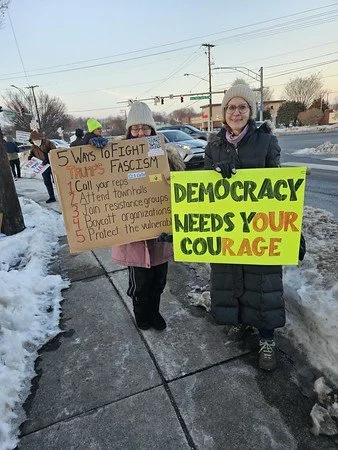 5 WAYS TO FIGHT
TRUMP'S FASCISM
1 Call your reps
2 Attend town halls
3 Join resistance groups
4 Boycott organizations
5 Protect the vulnerable
DEMOCRACY
NEEDS YOUR
COURAGE